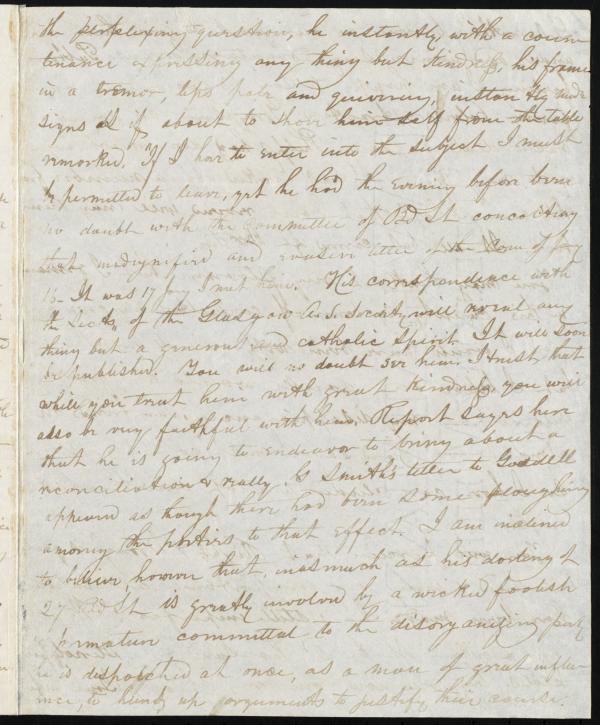 the perplexing question, he instantly, with a coun
tenance expressing any thing but kindness, his frame
in a tremor, lips pale and quivering, instantly made
signs as if about to thro himself from the table
remarked, "If I have to enter into the subject I must
be permitted to leave, yet he had the evening before been
no doubt with the Committee of Bd St concocting
that undignified and evasive letter of the Com of Jany
16 - It was 17 Jany I met him. His correspondence with
the Secty of the Glasgow A. S. Society will reveal any
thing but a generous and catholic spirit. It will soon
be published. You will no doubt see him. I trust, that
while you treat him with great kindness, you will
also be very faithful with him. Report says here
that he is going to endeavor to bring about a
reconciliation & really G Smith's letter to Goodell
appeared as though there had been some ploughing
among the parties to that effect. I am inclined
to believe, however that, inasmuch as his
27 Bd St is greatly involved by a wicked foolish
committal to the disorganizing party
he is dispatched at once, as a man of great influ
ence, to hunt up arguments to justify their course.